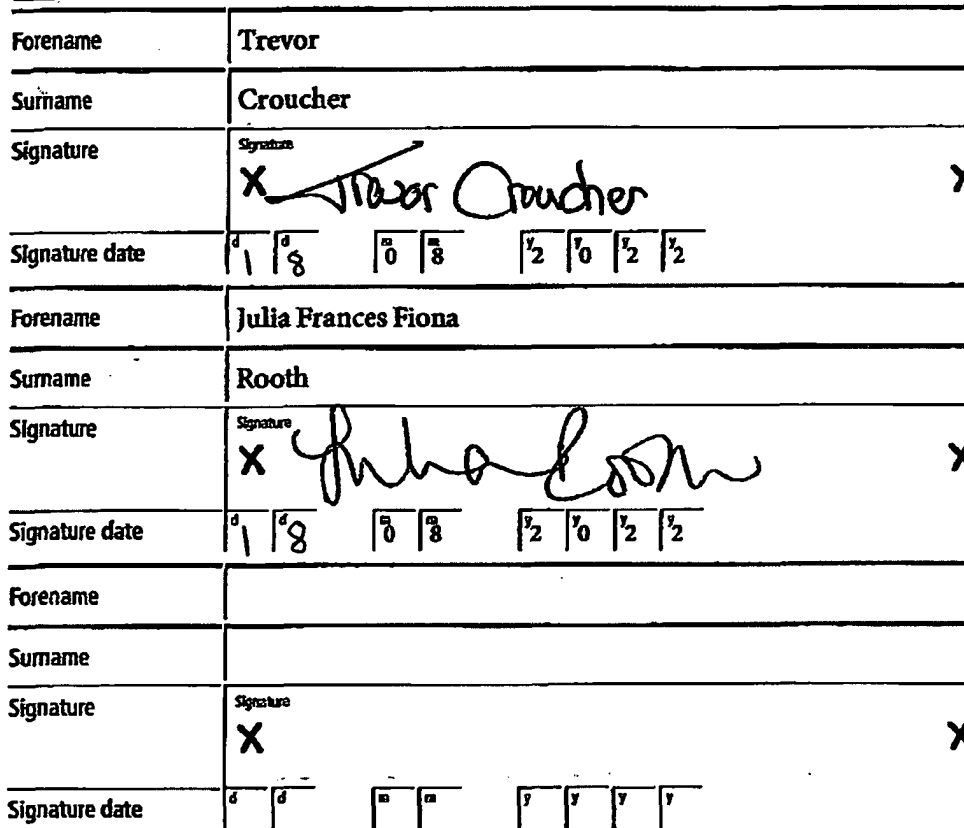 Forename Trevor
Surname Croucher
Signature Signature
X Trevor Croucher X
Signature date d1 d8 m0 m8 y2 y0 y2 y2
Forename Julia Frances Fiona
Surname Rooth
Signature Signature
X Julia Rooth X
Signature date d1 d8 m0 m8 y2 y0 y2 y2
Forename
Surname
Signature Signature
X X
Signature date d d m m y y y y